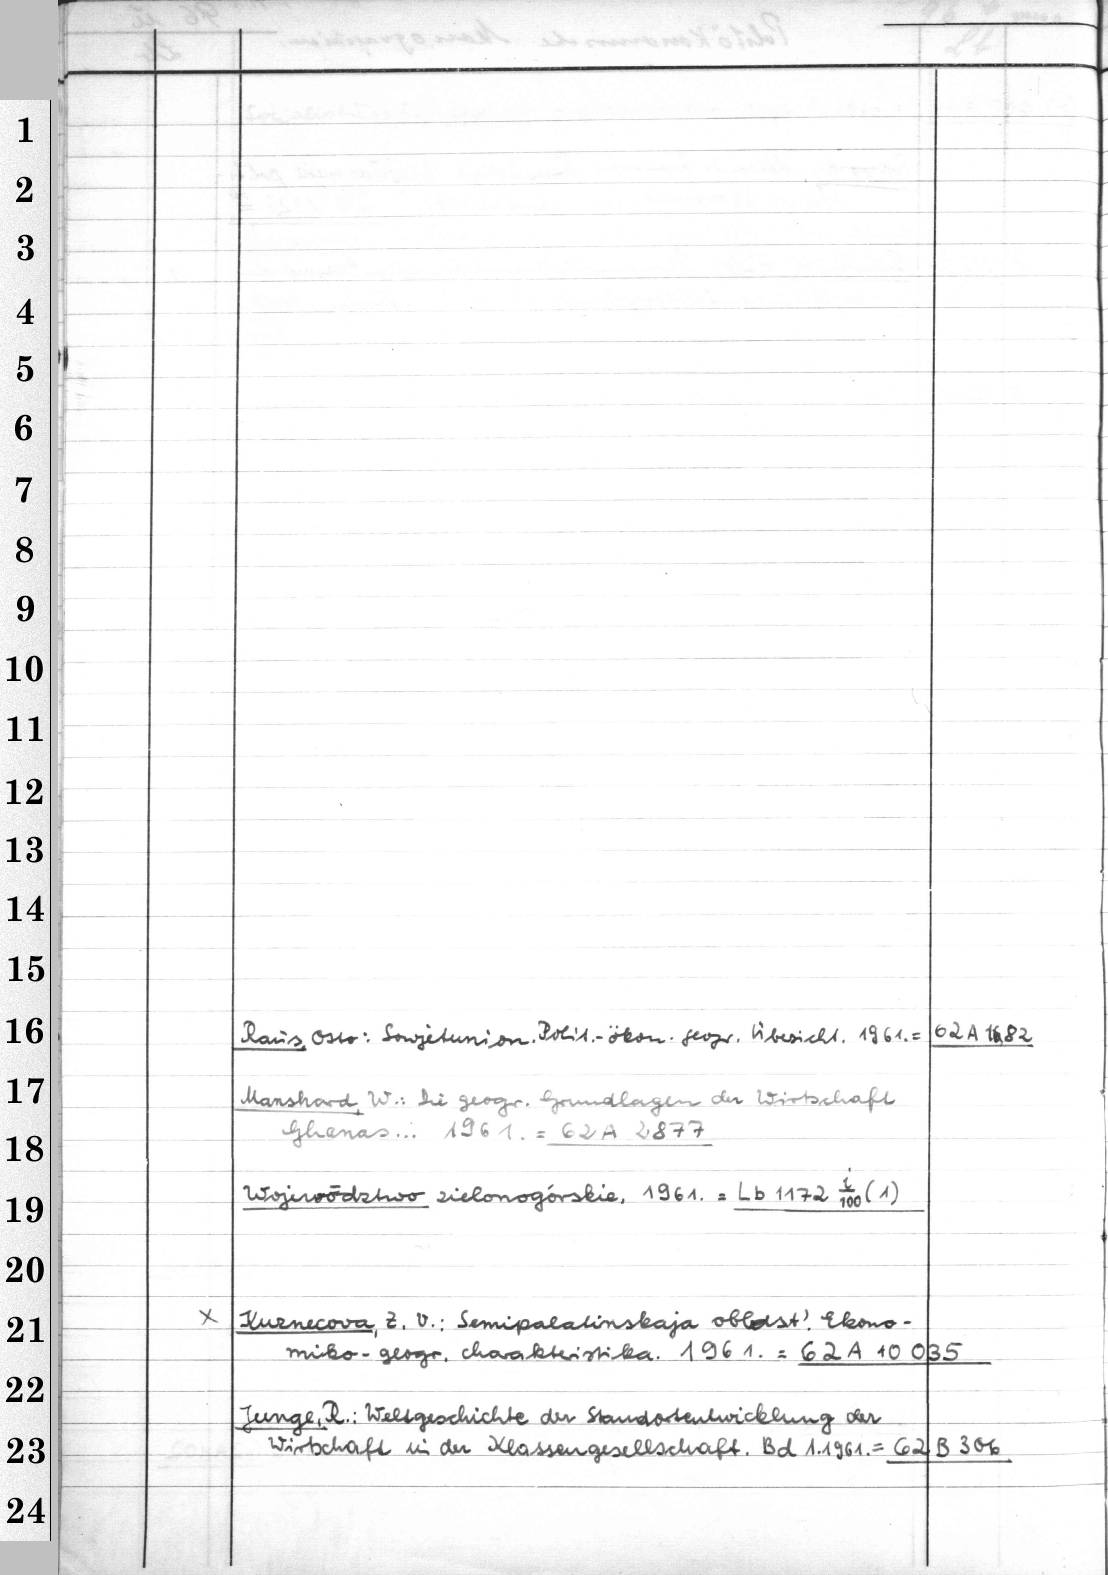 1
2
3
4
5
6
7
8
9
10
11
12
13
14
15
16
Raus, Otto: Sowjetunion. Polit.-ökon. geogr. Übersicht. 1961. = 62 A 1682
17
Manshard, W.: Die geogr. Grundlagen der Wirtschaft
Ghanas... 1961. = 62 A 2877
18
Województwo zielonogórskie. 1961. = Lb 1172 i/100 (1)
19
20
x Kuznecova, Z. V.: Semipalatinskaja oblast'. Ekono-
21
miko-geogr. charakteristika. 1961. = 62 A 10 035
22
Junge, R.: Weltgeschichte der Standortentwicklung der
23
Wirtschaft in der Klassengesellschaft. Bd 1. 1961. = 62 B 306
24